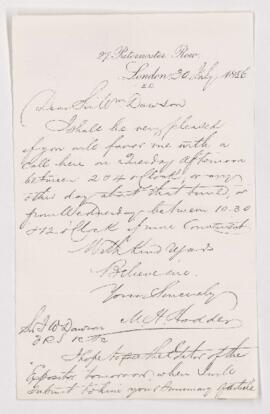 27 Paternoster Row,
London 30 July 1886
E.C.
Dear Sir Wm Dawson
I shall be very pleased
if you will favor me with a
call here on Tuesday afternoon
between 2 & 4 o'clock, or any
other day about that time, or
from Wednesday between 10.30
& 12 o'clock if more convenient.
With kind regards
Believe me
Yours Sincerely
M. H. Hodder
Sir J W Dawson
F.R.S.
I hope to see the Editor of the
Expositor tomorrow when I will
submit to him your Article